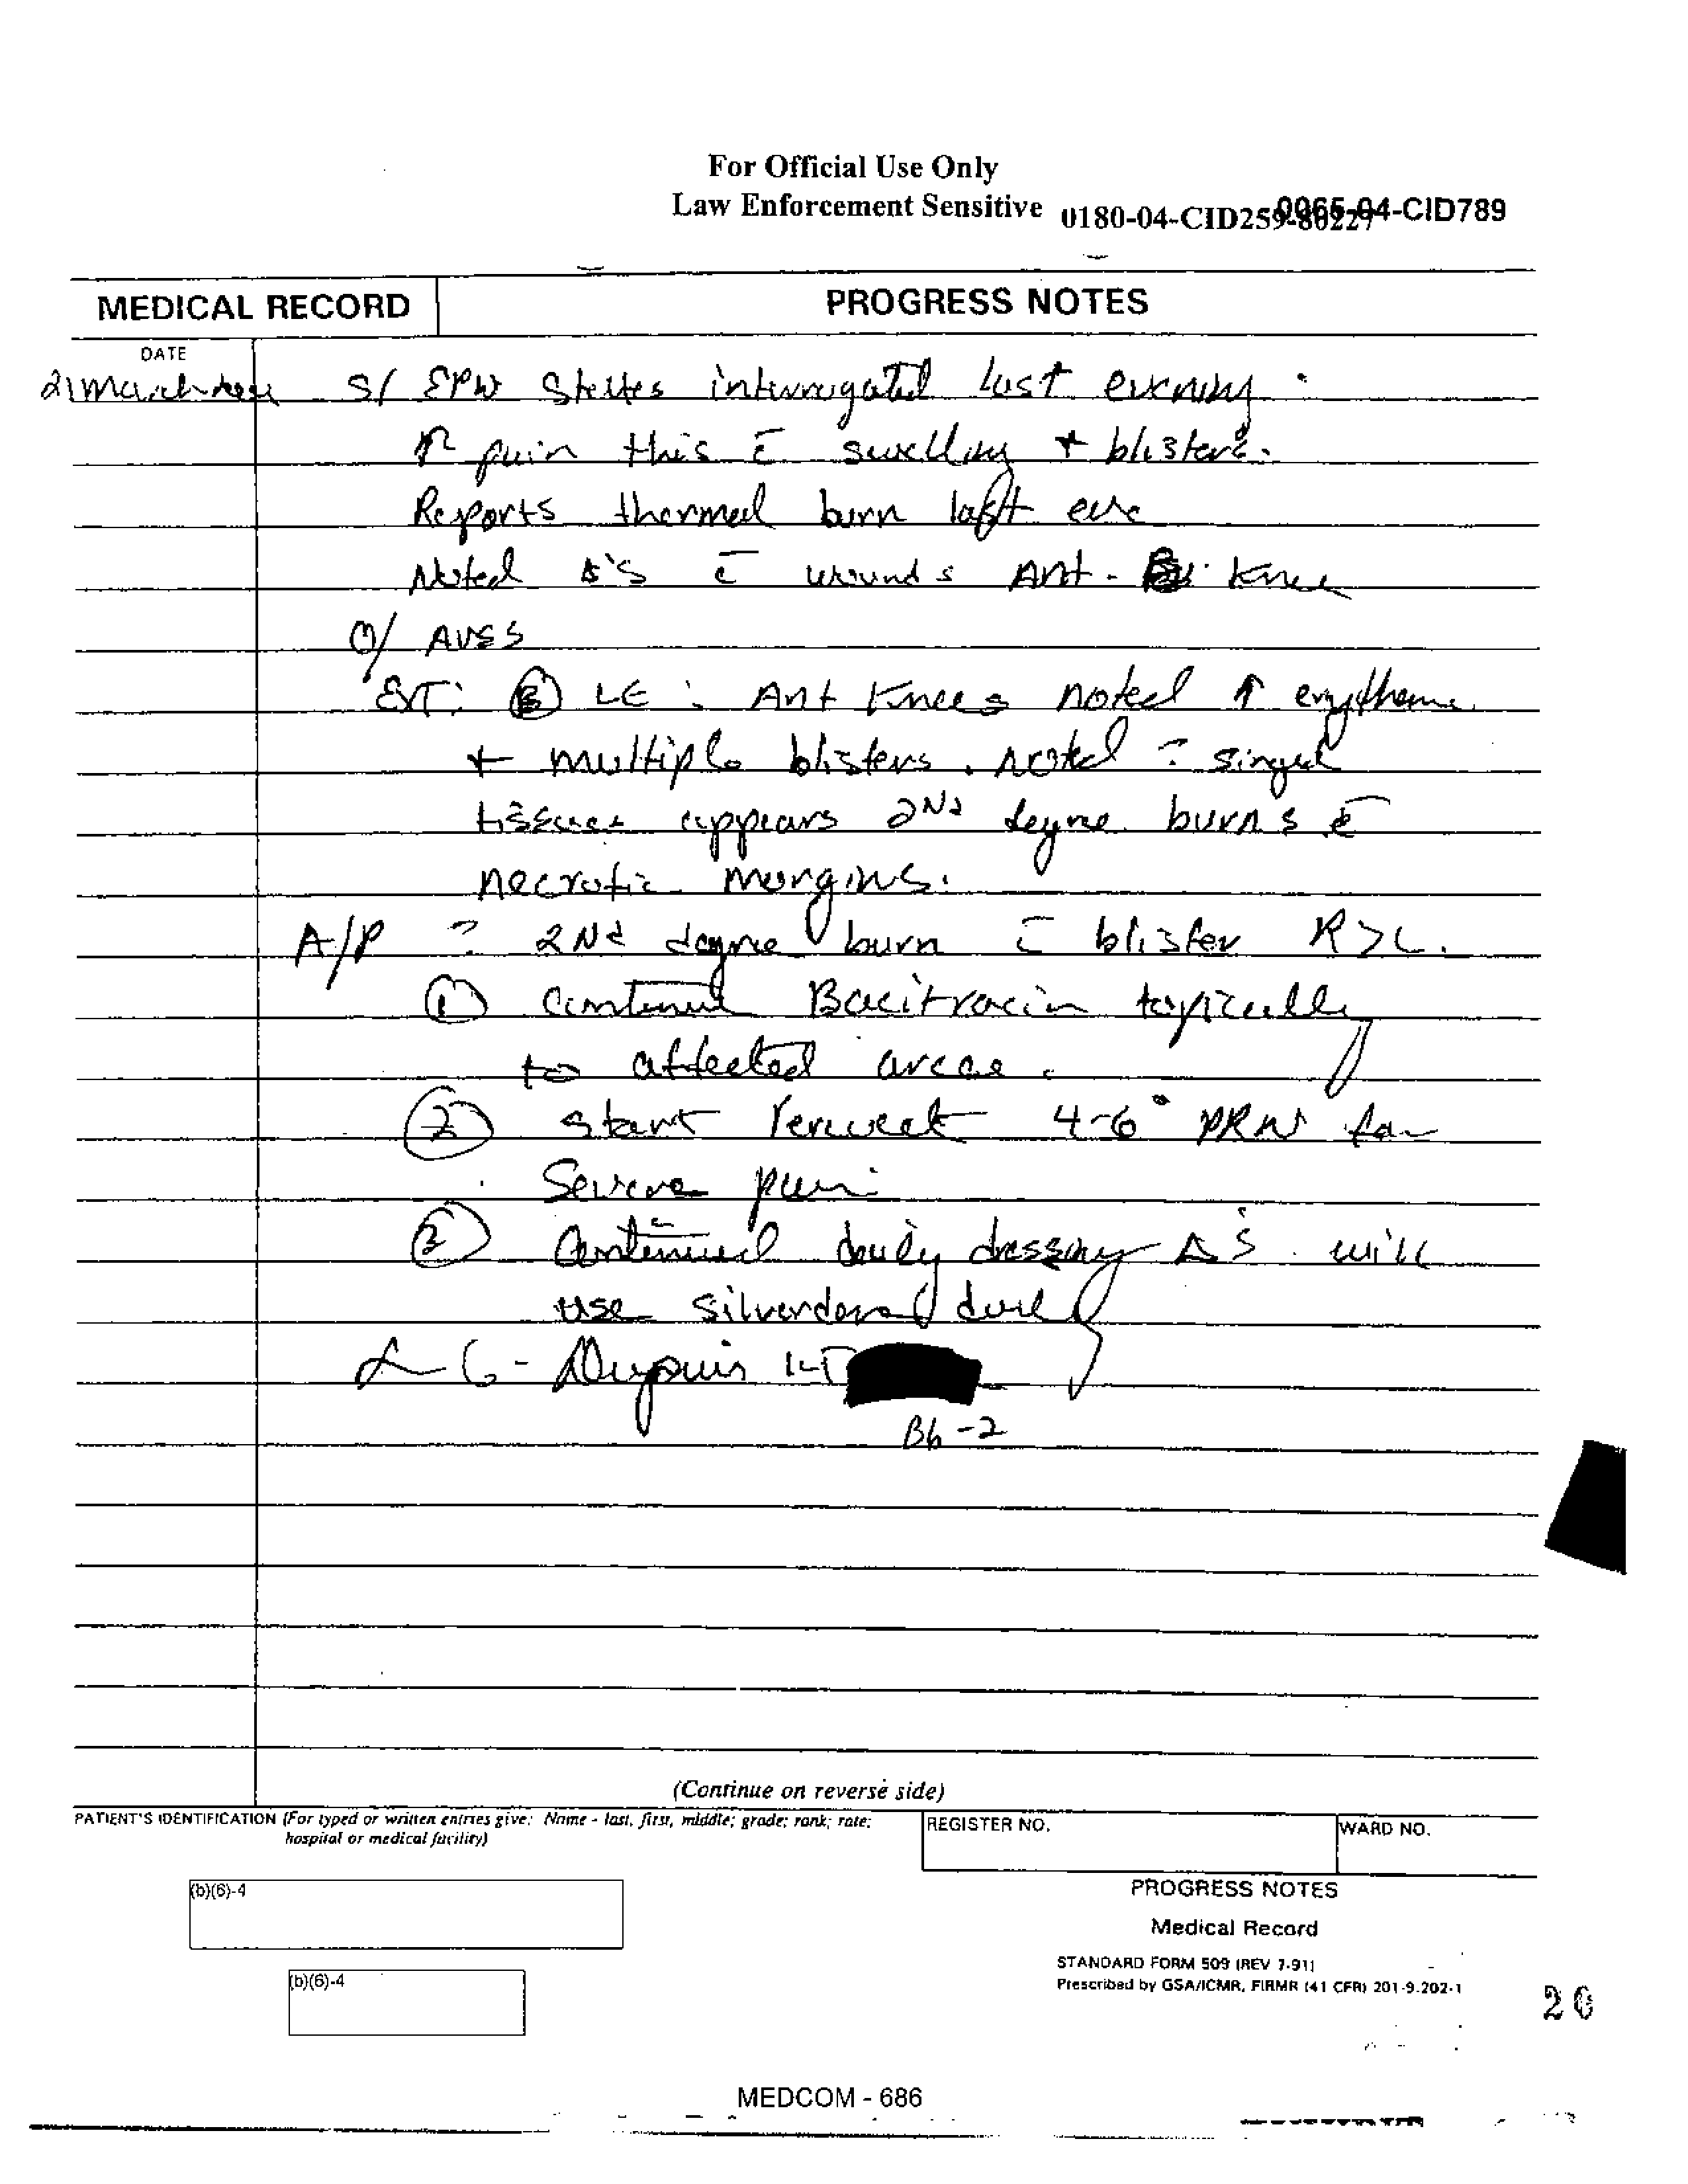 For Official Use Only
Law Enforcement Sensitive 0180-04-CID259-80227 0065-04-CID789
MEDICAL RECORD PROGRESS NOTES
DATE
21 March S/ EPW States interrogated last evening.
↑ pain this c̄ swelling + blisters.
Reports thermal burn last eve
Noted Δ's c̄ wounds Ant. Knee
O/ AVSS
EXT: Ⓑ LE: Ant Knees noted ↑ erythema
+ multiple blisters. Noted ? singed
tissue appears 2nd degree burns c̄
necrotic margins.
A/P ? 2nd degree burn c̄ blister R>L.
① Continue Bacitracin topically
to affected areas.
② Start Percocet 4-6° PRN for
Severe pain
③ Continued daily dressing Δ's. will
use silverdene daily
Dupuis 1LT
B6-2
(Continue on reverse side)
PATIENT'S IDENTIFICATION (For typed or written entries give: Name - last, first, middle; grade; rank; rate;
hospital or medical facility)
REGISTER NO.
WARD NO.
(b)(6)-4
(b)(6)-4
PROGRESS NOTES
Medical Record
STANDARD FORM 509 (REV 7-91)
Prescribed by GSA/ICMR, FIRMR (41 CFR) 201-9.202-1
20
MEDCOM - 686